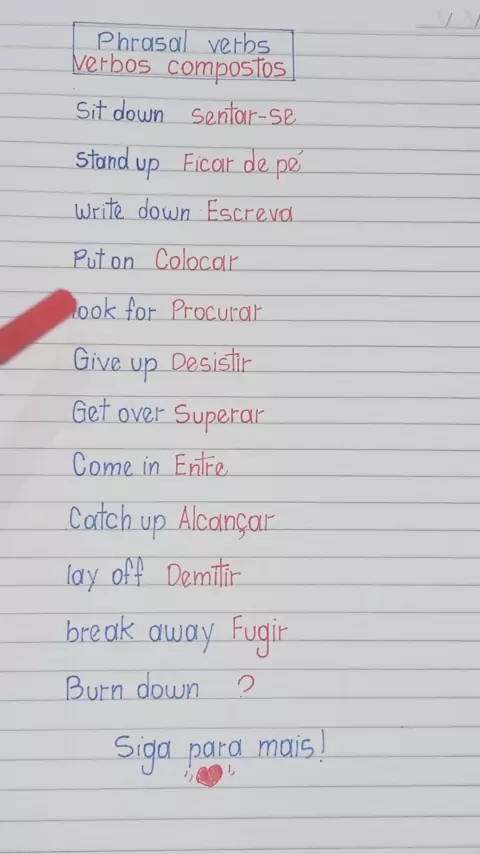 Phrasal verbs
verbos compostos
Sit down Sentar-se
Stand up Ficar de pé
Write down Escreva
Put on Colocar
look for Procurar
Give up Desistir
Get over Superar
Come in Entre
Catch up Alcançar
lay off Demitir
break away Fugir
Burn down ?
Siga para mais!